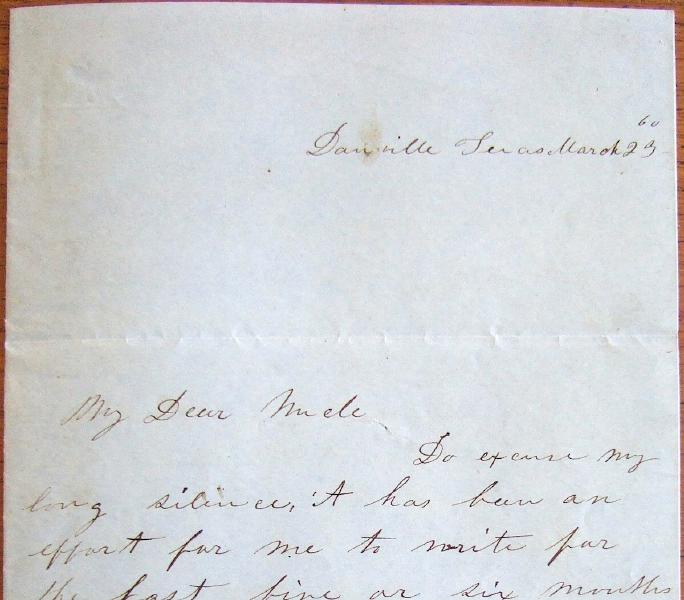 60
Danville Texas March 23
My Dear Uncle
Do excuse my
long silence, it has been an
effort for me to write for
the last five or six months